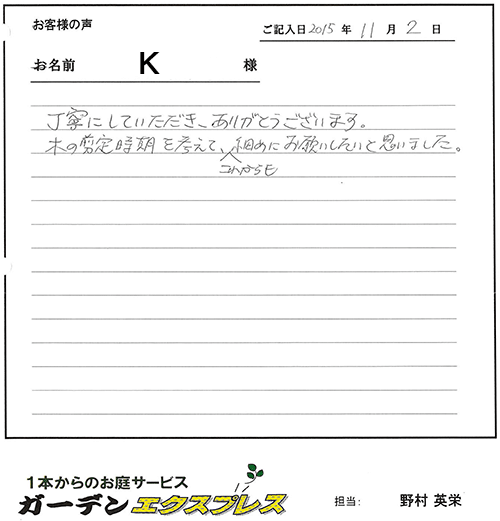 お客様の声
ご記入日2015年11月2日
お名前 K 様
丁寧にしていただき、ありがとうございます。
木の剪定時期を考えて、細めにお願いしたいと思いました。
これからも
1本からのお庭サービス
ガーデンエクスプレス
担当: 野村 英栄